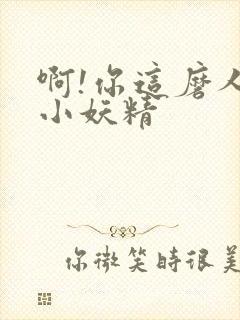 啊!你這磨人
小妖精
你微笑時很美